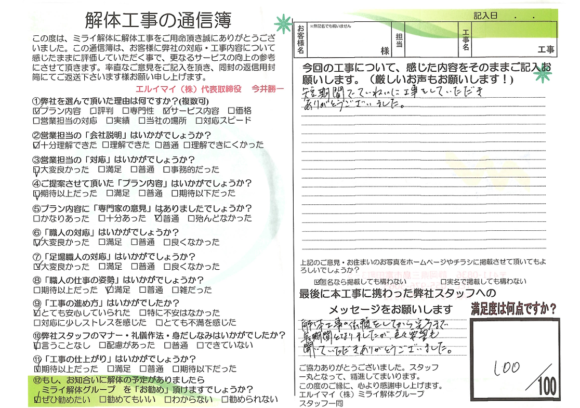 解体工事の通信簿
この度は、ミライ解体に解体工事をご用命頂き誠にありがとうござ
いました。この通信簿は、お客様に弊社の対応・工事内容について
感じたままに評価していただく事で、更なるサービスの向上の参考
にさせて頂きます。率直なご意見をご記入を頂き、同封の返信用封
筒にてご返送下さいます様お願い申し上げます。
エルイマイ(株)代表取締役 今井勝一
①弊社を選んで頂いた理由は何ですか?(複数可)
☑プラン内容 □評判 □専門性 ☑サービス内容 □価格
□営業担当の対応 □実績 □当社の場所 □対応スピード
②営業担当の「会社説明」はいかがでしょうか?
☑十分理解できた □理解できた □普通 □理解できにくかった
③営業担当の「対応」はいかがでしょうか?
☑大変良かった □満足 □普通 □事務的だった
④ご提案させて頂いた「プラン内容」はいかがでしょうか?
☑期待以上だった □満足 □普通 □期待以下だった
⑤プラン内容に「専門家の意見」はありましたでしょうか?
□かなりあった □十分あった ☑普通 □殆んどなかった
⑥「職人の対応」はいかがでしょうか?
☑大変良かった □満足 □普通 □良くなかった
⑦「足場職人の対応」はいかがでしょうか?
☑大変良かった □満足 □普通 □良くなかった
⑧「職人の仕事の姿勢」はいかがでしょうか?
□期待以上だった ☑満足 □普通 □雑だった
⑨「工事の進め方」はいかがでしたか?
☑とても安心していられた □特に不安はなかった
□対応に少しストレスを感じた □とても不満を感じた
⑩弊社スタッフのマナー・礼儀作法・身だしなみはいかがでしたか?
☑言うことなし □配慮があった □普通 □できていない
⑪「工事の仕上がり」はいかがでしょうか?
□期待以上だった ☑満足 □普通 □期待以下だった
⑫もし、お知合いに解体の予定がありましたら
ミライ解体グループ を「お勧め」頂けますでしょうか?
☑ぜひ勧めたい □勧めてもいい □わからない □勧められない
記入日 . .
お客様名
※匿名でも構いません
様
担当
工事名
工事
今回の工事について、感じた内容をそのままご記入お
願いします。(厳しいお声もお願いします!)
短期間でていねいに工事をしていただき
ありがとうございました。
上記のご意見・お住まいのお写真をホームページやチラシに掲載させて頂いてもよ
ろしいでしょうか?
☑匿名なら掲載しても構わない □実名で掲載しても構わない
最後に本工事に携わった弊社スタッフへの
メッセージをお願いします
解体工事の依頼をしてから
長期間となりましたが
聞いていただきありがとうございました。
ご協力ありがとうございました。スタッフ
一丸となって、精進してまいります。
この度のご縁に、心より感謝申し上げます。
エルイマイ(株)ミライ解体グループ
スタッフ一同
満足度は何点ですか?
100
/100